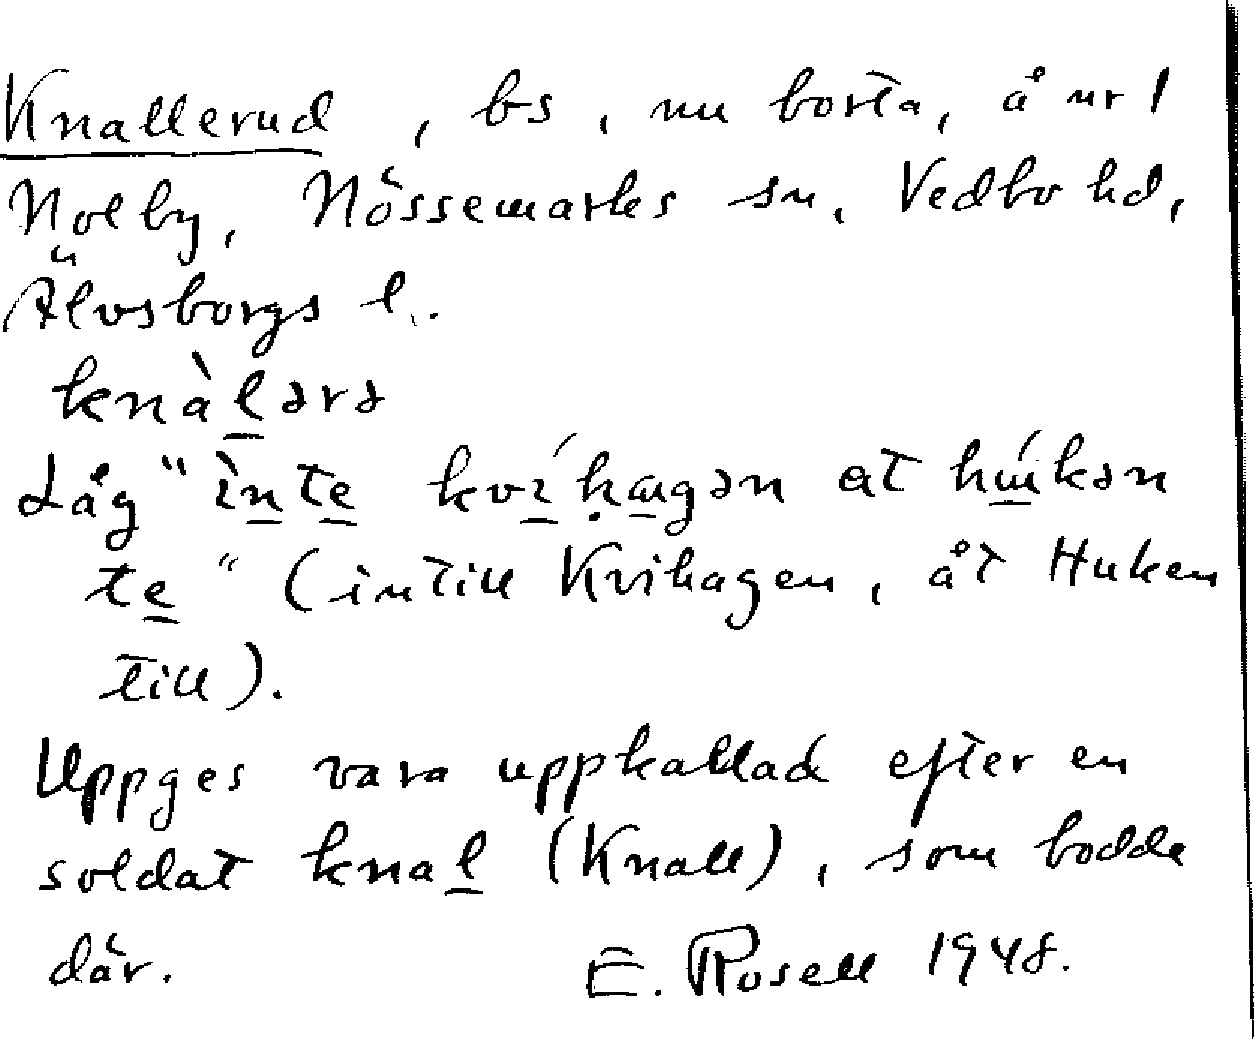 Knallerud, bs, nu borta, å nr 1
Nolby, Nössemarks sn, Vedbo hd,
Älvsborgs l.
knàl̲ərə
Låg "ìn̲te̲ kvı̲́hægən at hɯ̲́kən
te̲" (intill Kvihagen, åt Huken
till).
Uppges vara uppkallad efter en
soldat knal̲ (Knall), som bodde
där. E. Rosell 1948.